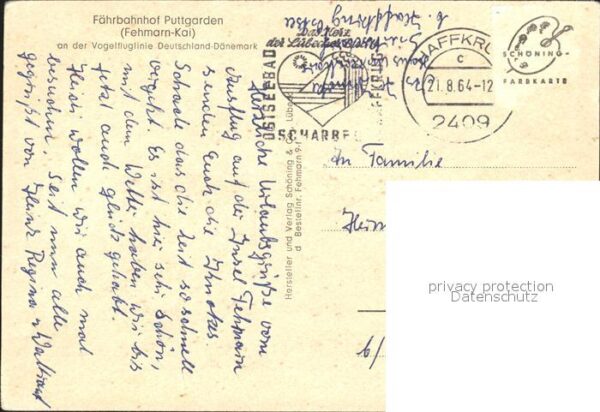 Fährbahnhof Puttgarden
(Fehmarn-Kai)
an der Vogelfluglinie Deutschland-Dänemark
Herzliche Urlaubsgrüße vom
Ausflug auf die Insel Fehmarn
senden Euch die
Schade das die Zeit so schnell
vergeht. Es ist hier sehr schön,
mit dem Wetter haben wir bis
jetzt auch glück gehabt.
Heidi wollen wir auch mal
besuchen. Seit nun alle
gegrüßt von Heinz Regina u Waltraud
Hersteller und Verlag Schöning & Co., Lübeck
d Bestellnr. Fehmarn 9 f
Das Herz
der Lübecker
OSTSEEBAD
SCHARBEU
HAFFKRUG
HAFFKRU
c
21.8.64-12
2409
SCHÖNING-
FARBKARTE
An Familie
privacy protection
Datenschutz